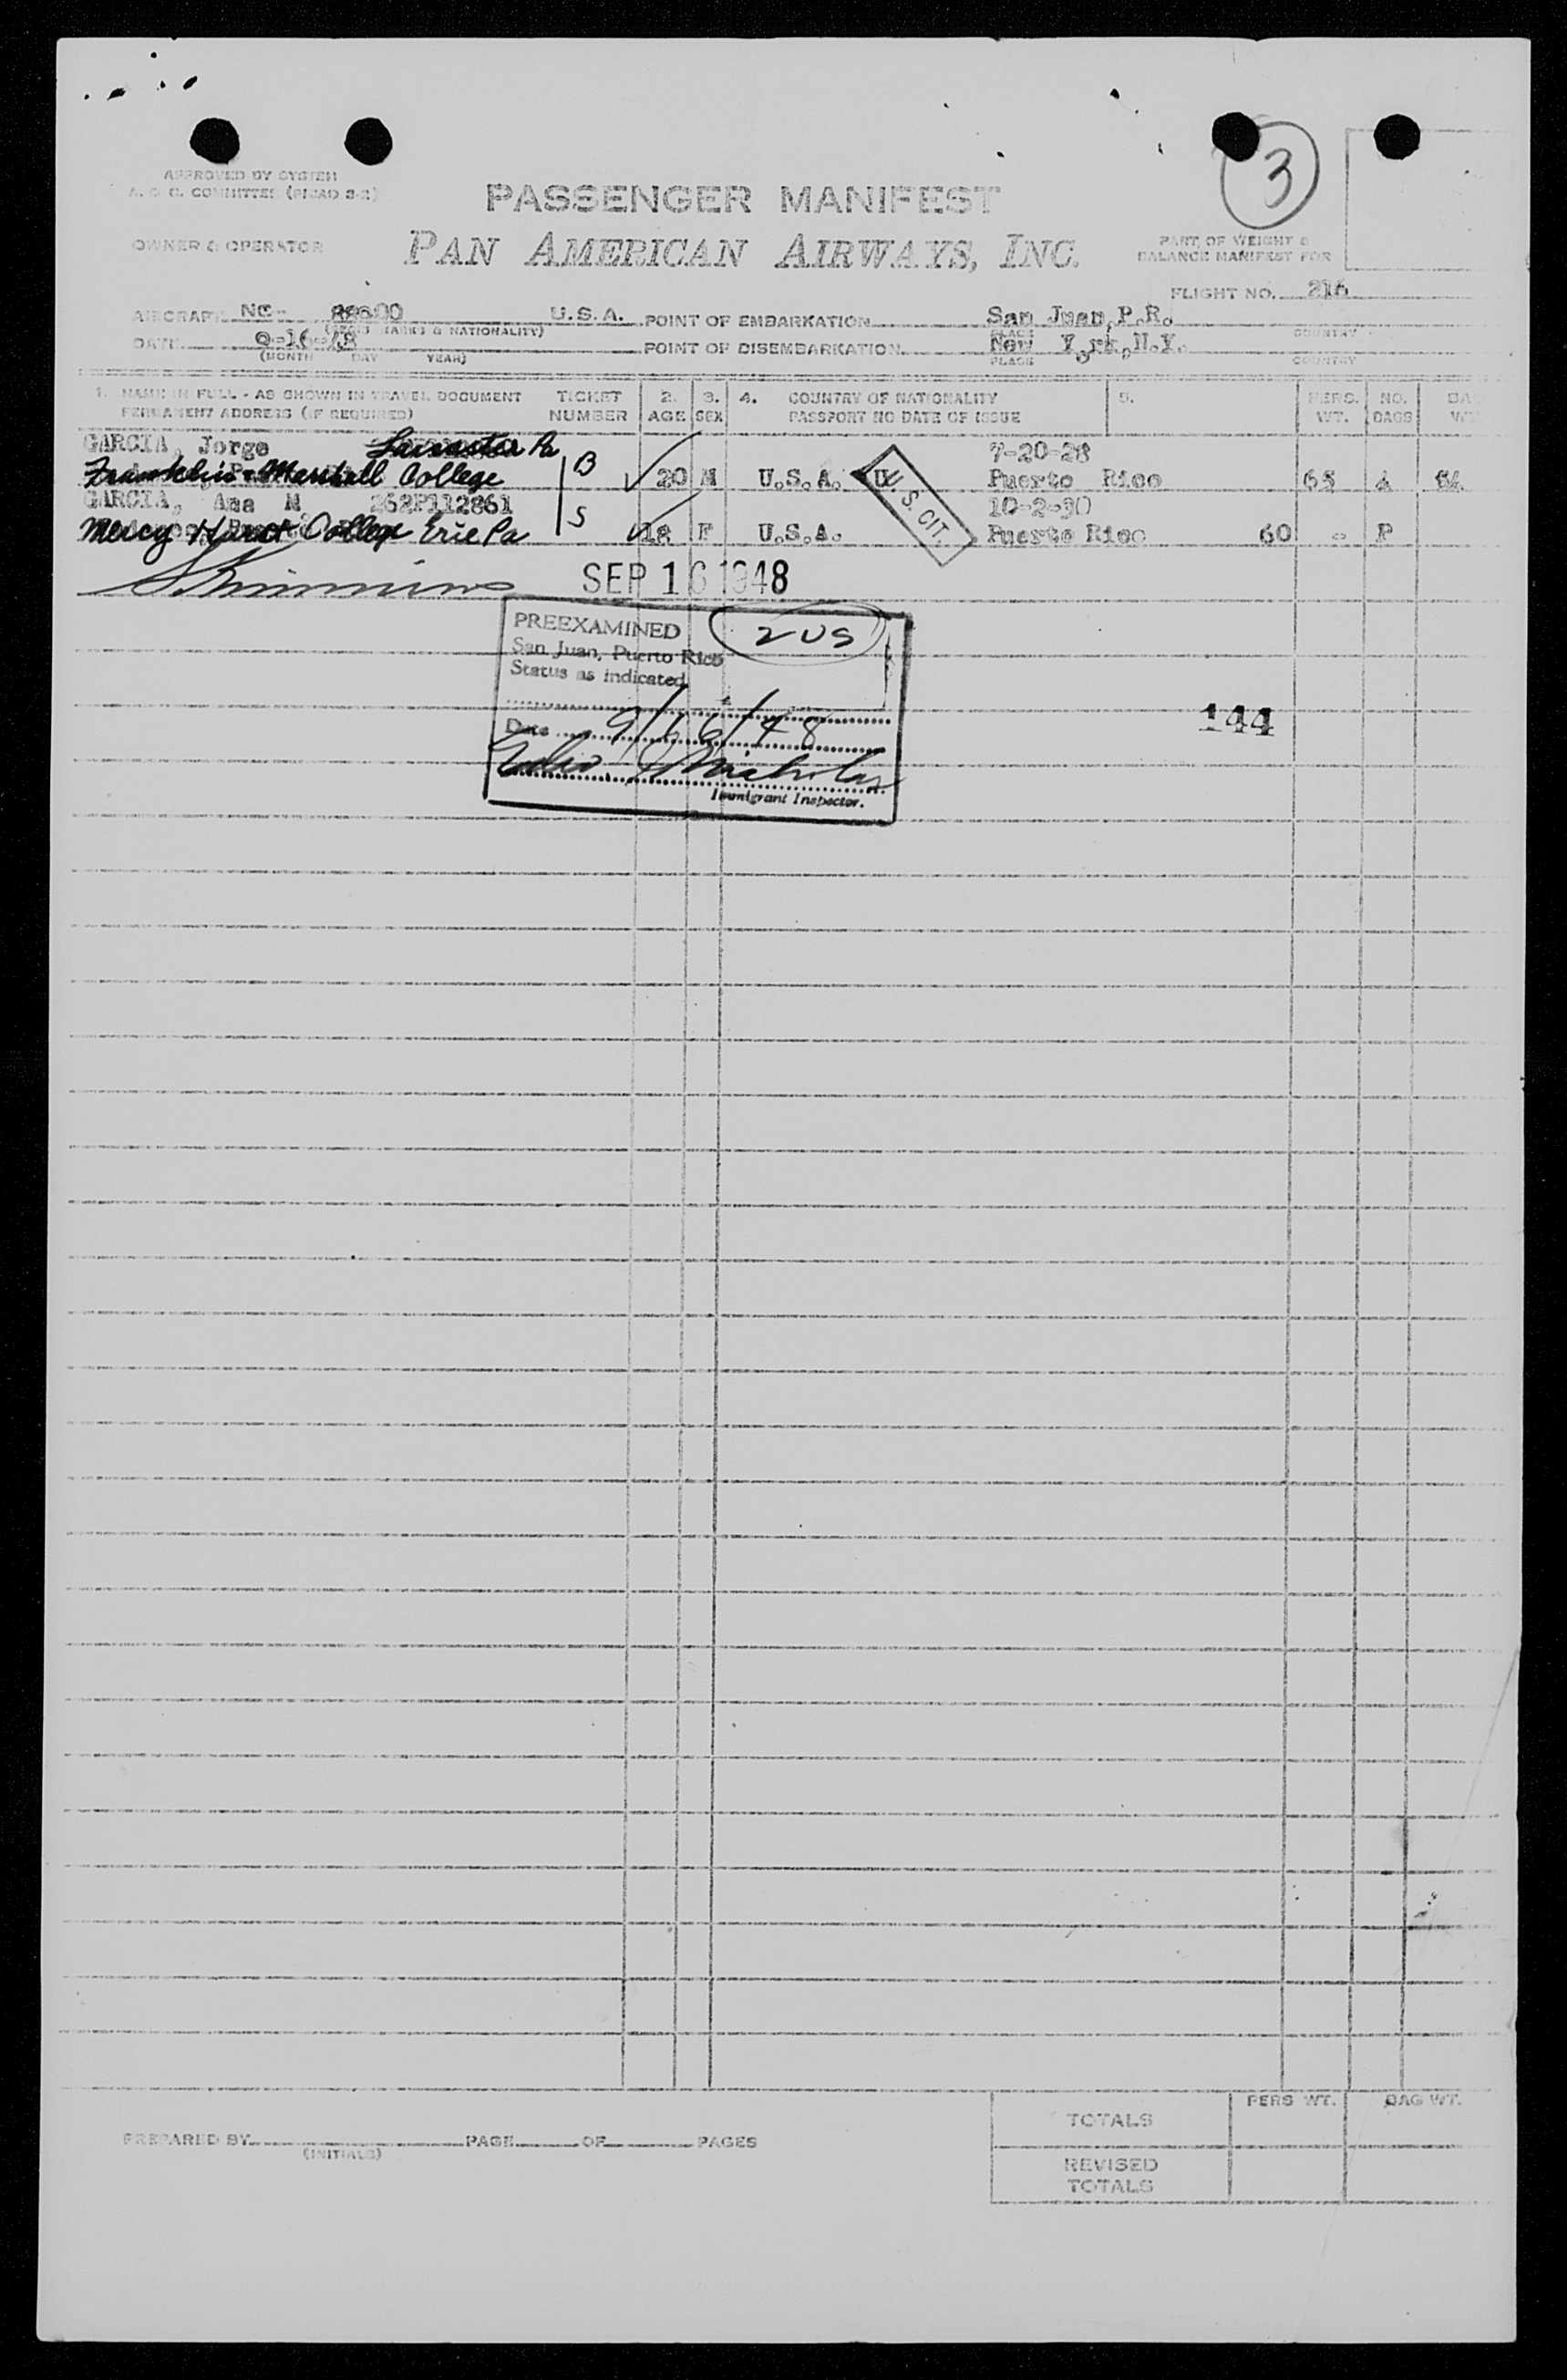 3
APPROVED BY SYSTEM
A. O. C. COMMITTEE
PASSENGER MANIFEST
OWNER & OPERATOR
PAN AMERICAN AIRWAYS, INC.
PART OF WEIGHT &
BALANCE MANIFEST FOR
FLIGHT NO. 216
AIRCRAFT NC- 88600 U.S.A. POINT OF EMBARKATION San Juan, P.R.
(REGIS MARKS & NATIONALITY) PLACE COUNTRY
DATE 9-16-48 POINT OF DISEMBARKATION New York, N.Y.
(MONTH DAY YEAR) PLACE COUNTRY
1. NAME IN FULL - AS SHOWN IN TRAVEL DOCUMENT TICKET 2. 3. 4. COUNTRY OF NATIONALITY 5. PERS. NO.
PERMANENT ADDRESS (IF REQUIRED) NUMBER AGE SEX PASSPORT NO DATE OF ISSUE WT. BAGS
GARCIA, Jorge Lancaster Pa 7-20-28
Franklin & Marshall College B 20 M U.S.A. U. S. CIT. Puerto Rico 65 4
GARCIA, Ana M 262P112861 S 10-2-30
Mercy Hurst College Erie Pa 18 F U.S.A. Puerto Rico 60 - P
SEP 16 1948
PREEXAMINED 2 US
San Juan, Puerto Rico
Status as indicated
Date 9/16/48
144
Immigrant Inspector.
TOTALS PERS WT. BAG WT.
PREPARED BY PAGE OF PAGES
(INITIALS)
REVISED
TOTALS